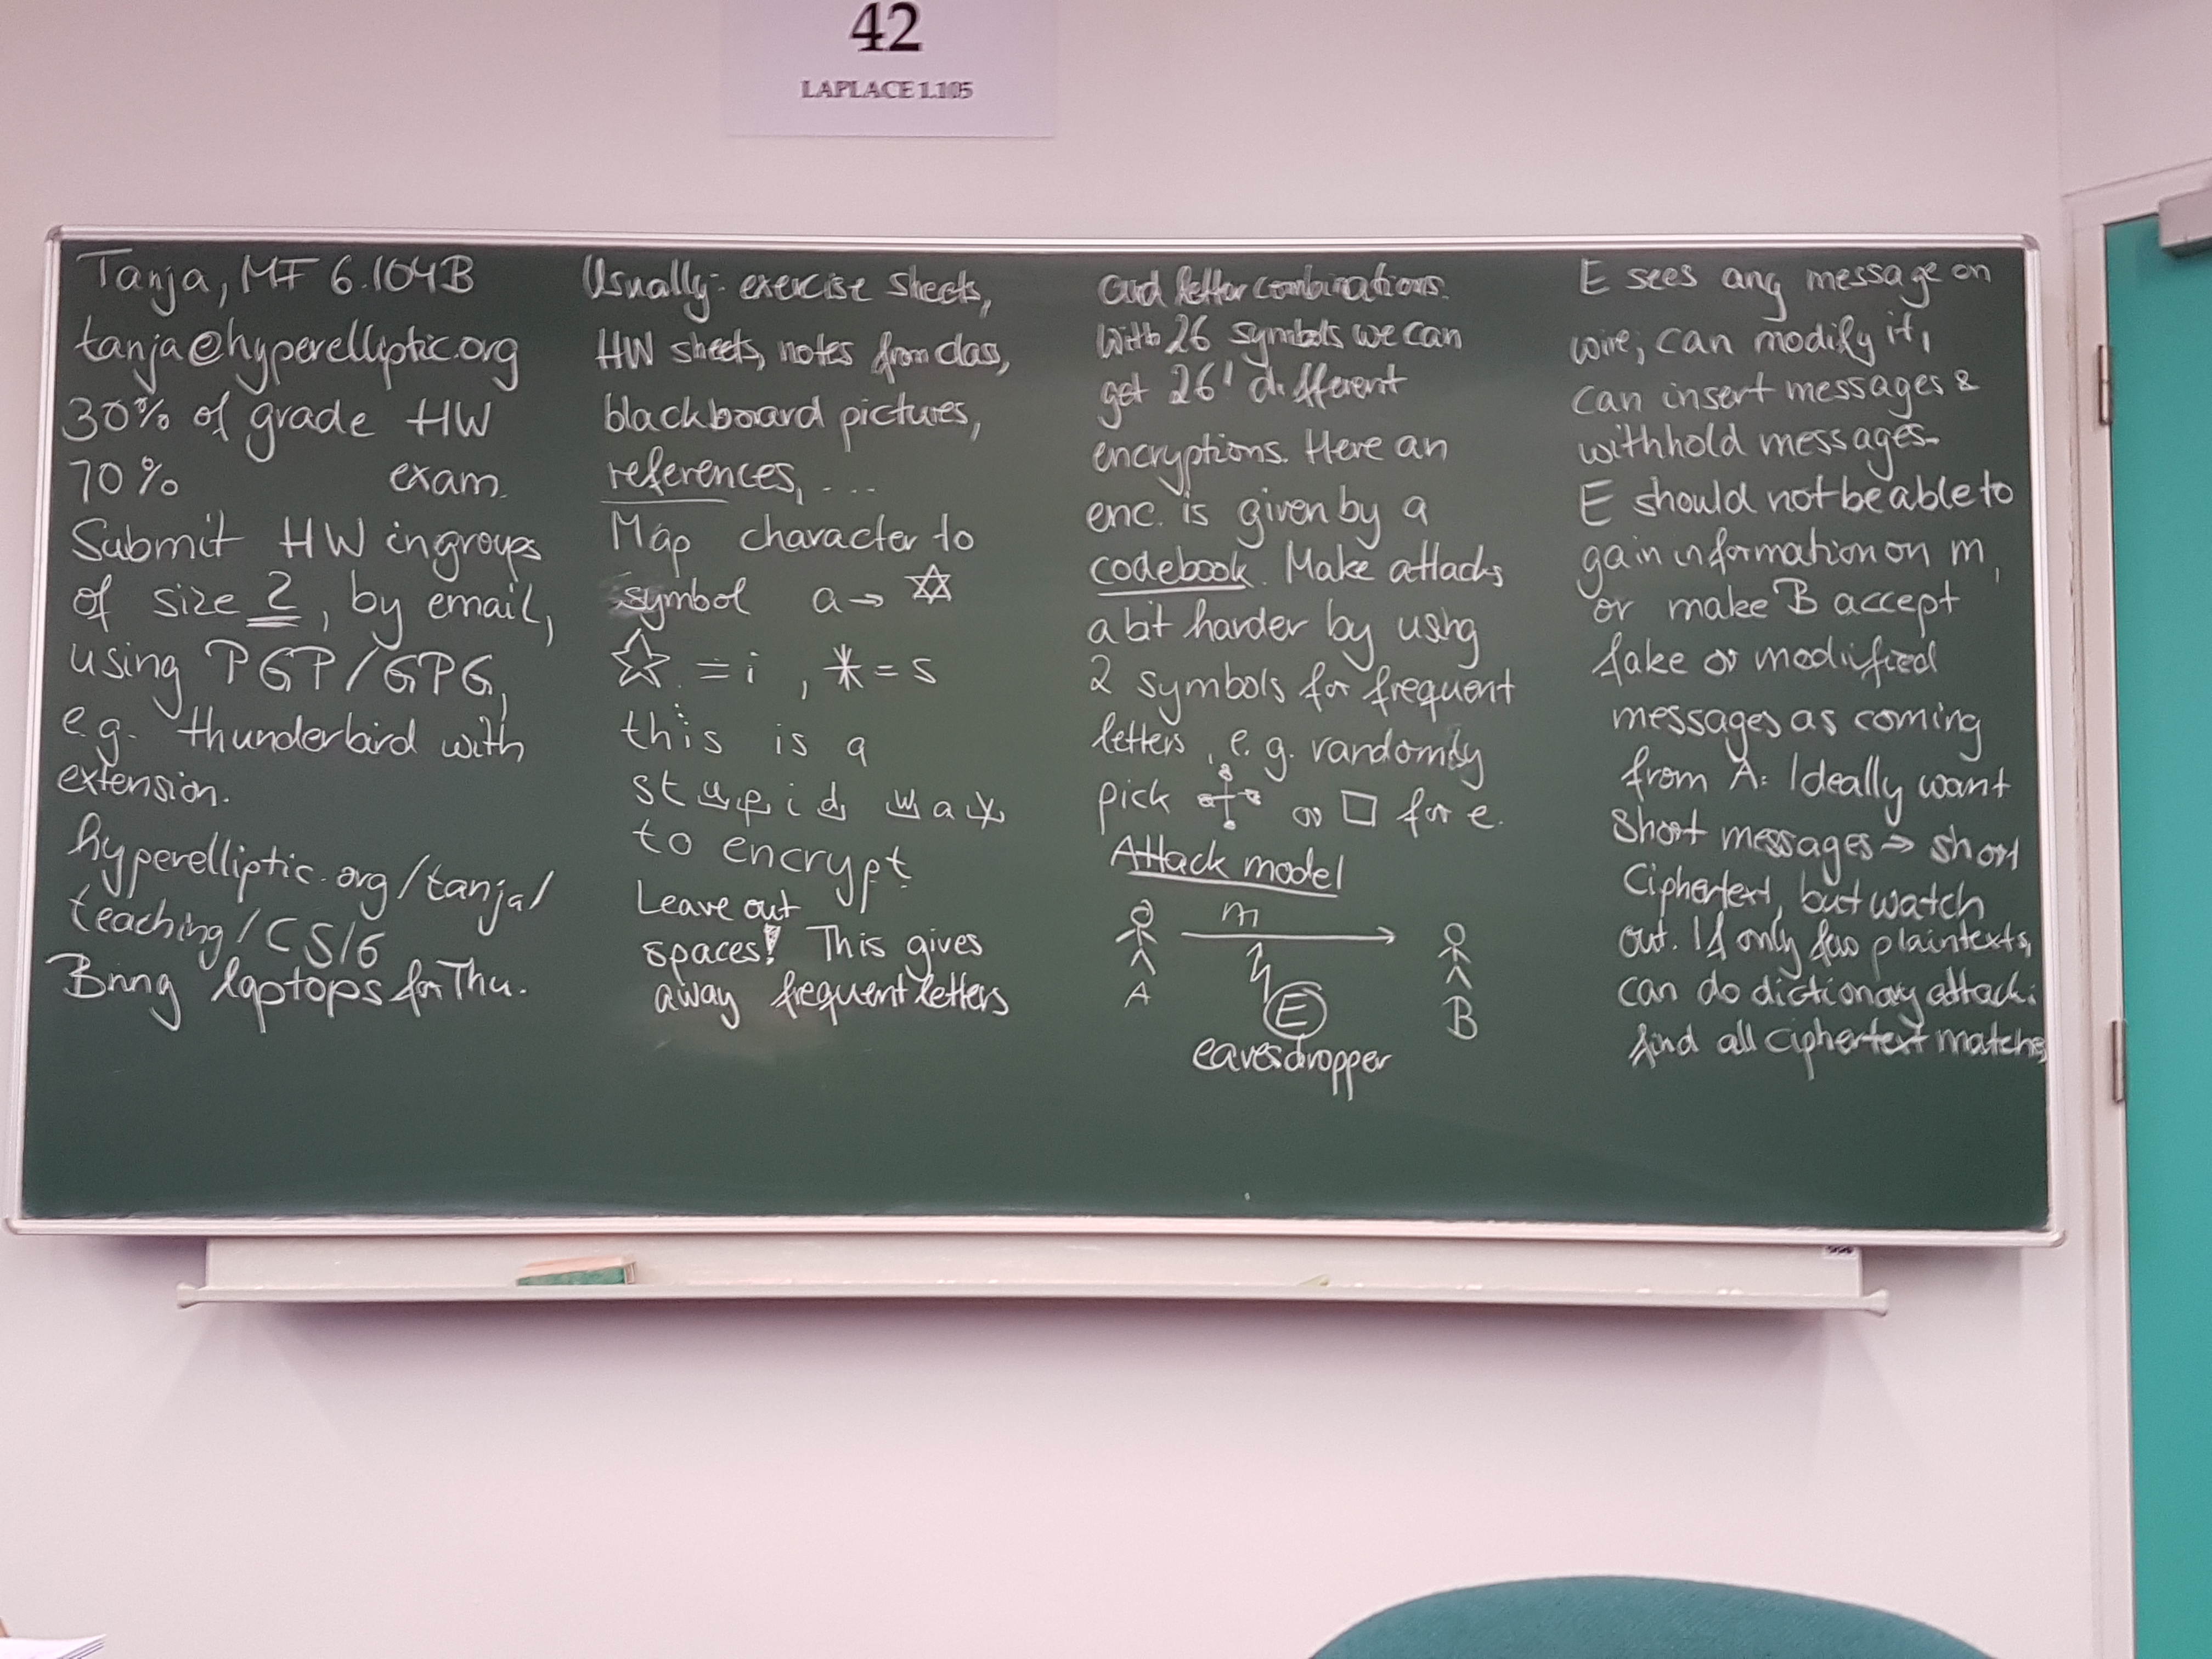 42
LAPLACE 1.105
Tanja, MF 6.104B
tanja@hyperelliptic.org
30% of grade HW
70% exam.
Submit HW in groups
of size 2, by email,
using PGP/GPG,
e.g. thunderbird with
extension.
hyperelliptic.org/tanja/
teaching/CS16
Bring laptops for Thu.
Usually: exercise sheets,
HW sheets, notes from class,
blackboard pictures,
references, ...
Map character to
symbol a → ✡
☆ = i , * = s
this is a
stupid way
to encrypt
Leave out
spaces! This gives
away frequent letters
and letter combinations.
With 26 symbols we can
get 26! different
encryptions. Here an
enc. is given by a
codebook. Make attacks
a bit harder by using
2 symbols for frequent
letters, e.g. randomly
pick or □ for e.
Attack model
m
A
E
B
eavesdropper
E sees any message on
wire; can modify it,
can insert messages &
withhold messages.
E should not be able to
gain information on m,
or make B accept
fake or modified
messages as coming
from A. Ideally want
short messages → short
ciphertext, but watch
out. If only few plaintexts,
can do dictionary attack:
find all ciphertext matches